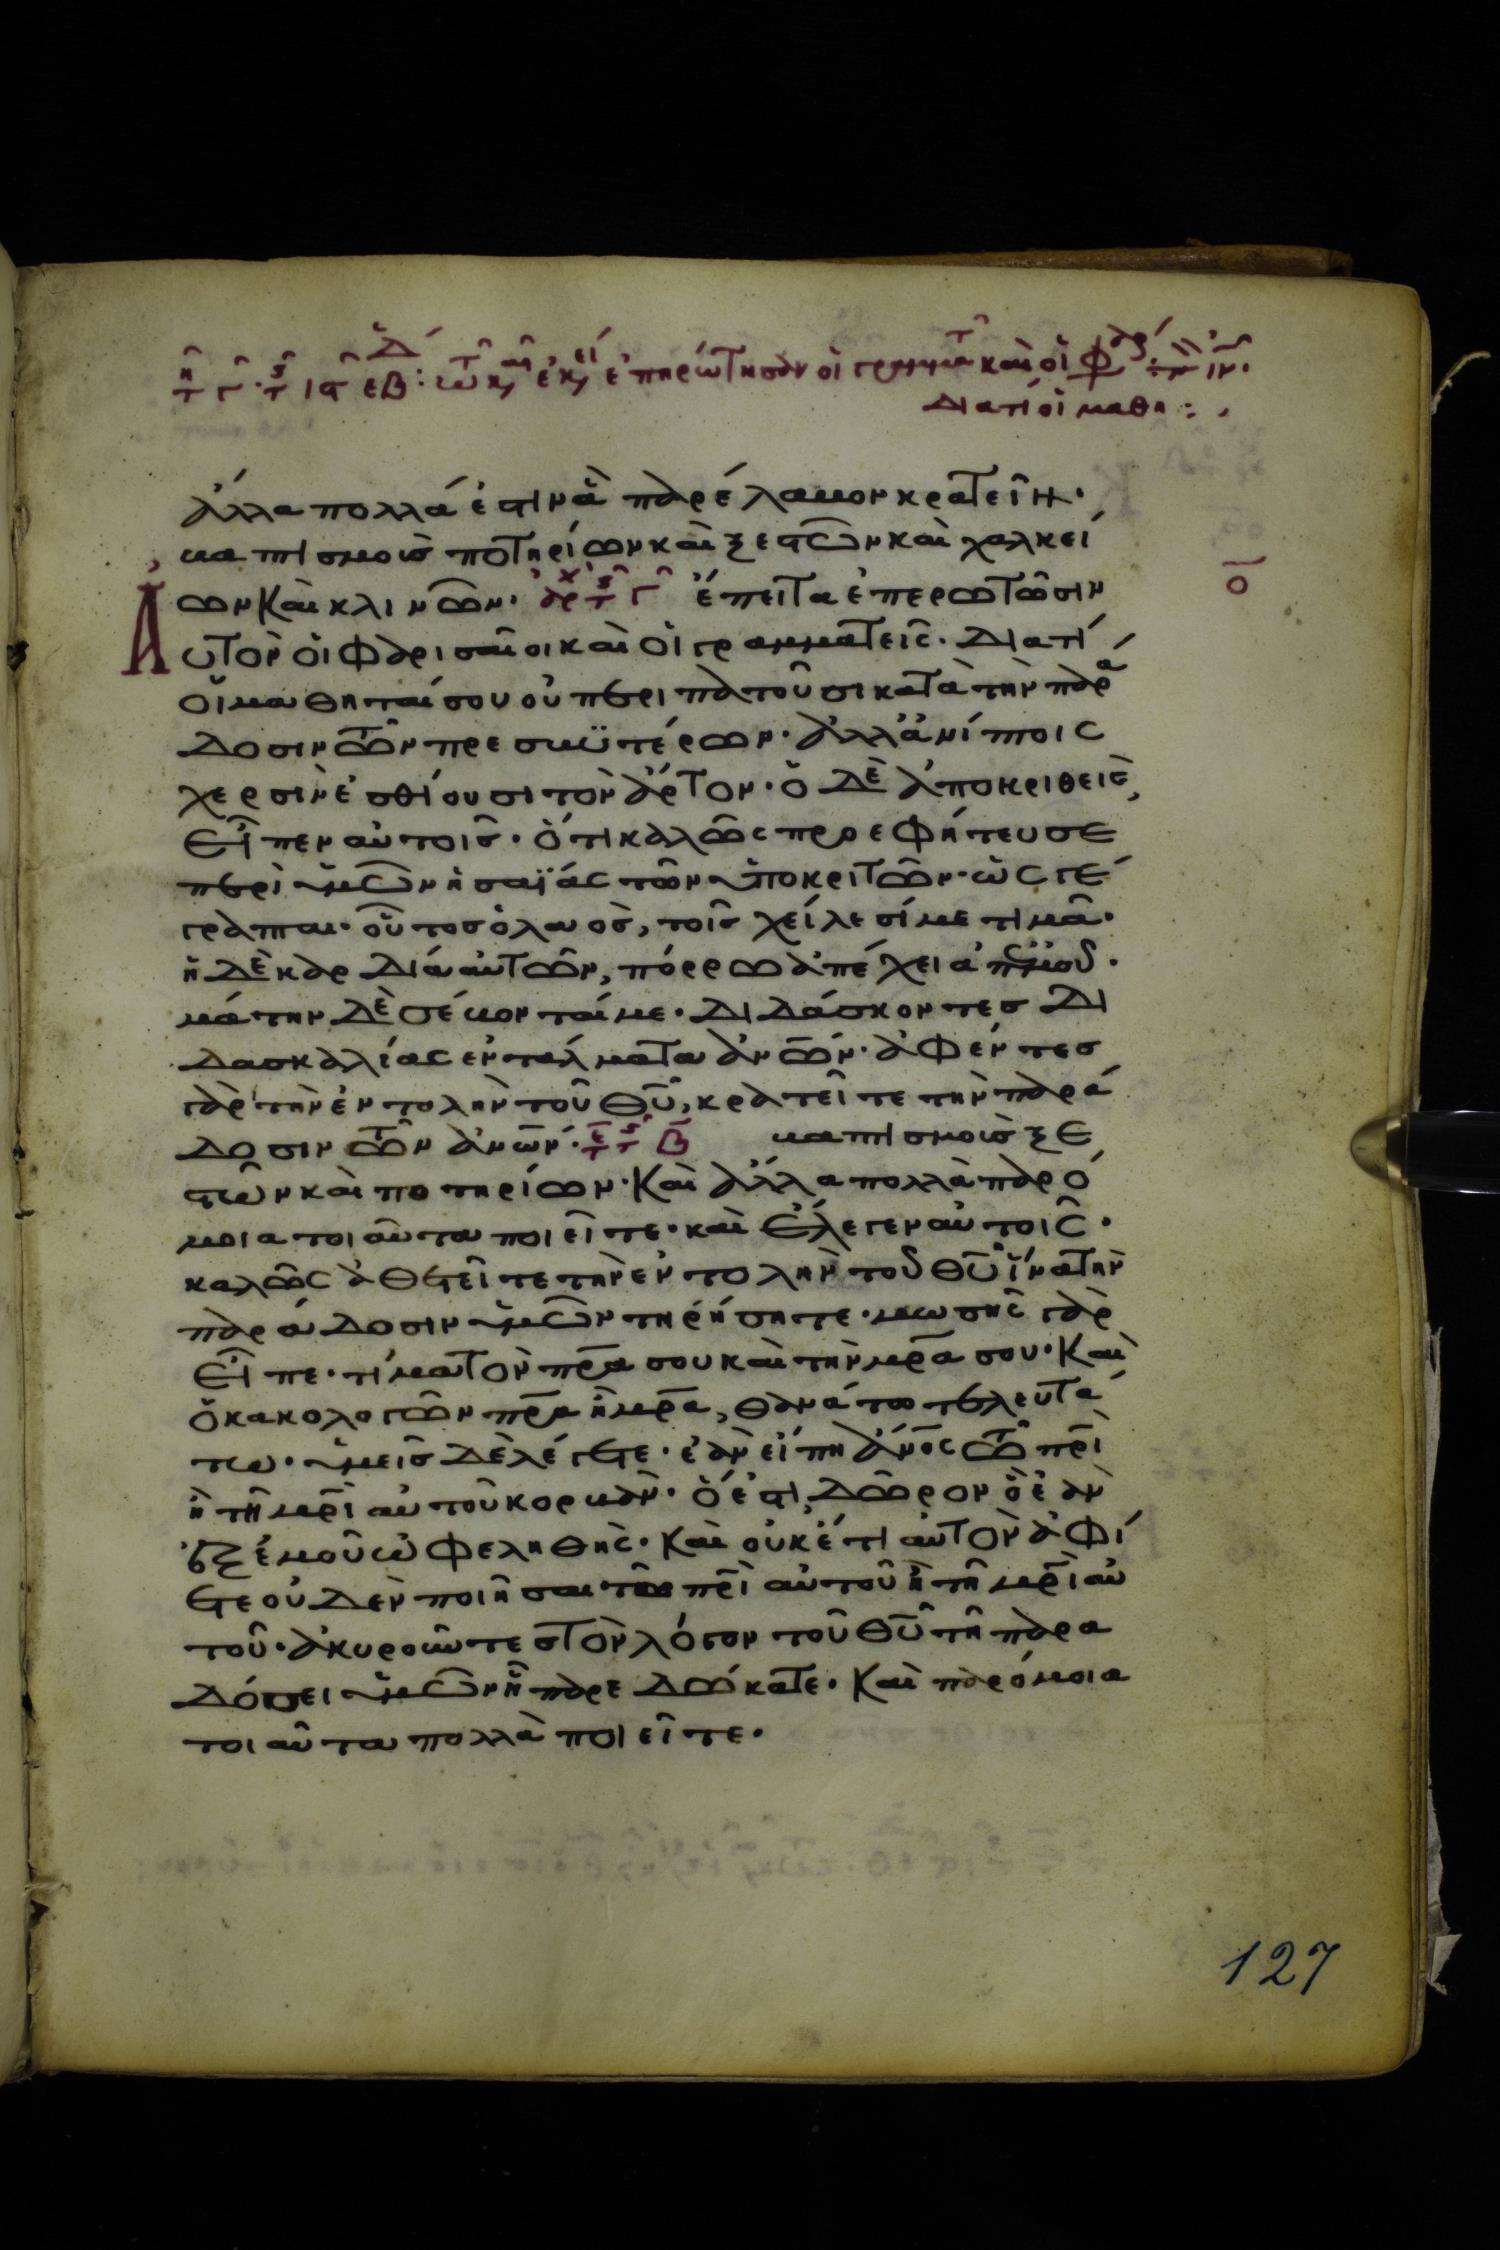 ἐπηρώτησαν οἱ γραμμα καὶ οἱ Φαρ
Διατί οἱ μαθη:
ἄλλα πολλά ἐστιν ἃ παρέλαβον κρατεῖν·
βαπτισμοὺς ποτηρίων καὶ ξεστῶν καὶ χαλκεί
ων καὶ κλινῶν· ἀρχ ἔπειτα ἐπερωτῶσιν
ο̄
Αὐτὸν οἱ Φαρισαῖοι καὶ οἱ γραμματεῖς· Διατί
οἱ μαθηταί σου οὐ περιπατοῦσι κατὰ τὴν παρά
δοσιν τῶν πρεσβϋτέρων· ἀλλ' ἀνίπτοις
χερσὶν ἐσθίουσι τὸν ἄρτον· ὁ δὲ ἀποκριθεὶς,
εἶπεν αὐτοῖς· ὅτι καλῶς προεφήτευσε
περὶ ὑμῶν ἠσαΐας τῶν ὑποκριτῶν· ὡς γέ
γραπται· οὗτος ὁ λαὸς, τοῖς χείλεσί με τιμᾶ·
ἡ δὲ καρδία αὐτῶν, πόρρω ἀπέχει ἀπ' ἐμοῦ·
μάτην δὲ σέβονταί με· διδάσκοντες δι
δασκαλίας ἐντάλματα ἀνῶν· ἀφέντες
γὰρ τὴν ἐντολὴν τοῦ θῦ, κρατεῖτε τὴν παρά
δοσιν τῶν ἀνῶν· βαπτισμοὺς ξε
στῶν καὶ ποτηρίων· καὶ ἄλλα πολλὰ παρό
μοια τοιαῦτα ποιεῖτε· καὶ ἔλεγεν αὐτοῖς·
καλῶς ἀθετεῖτε τὴν ἐντολὴν τοῦ θῦ ἵνα τὴν
παράδοσιν ὑμῶν τηρήσητε· μωσῆς γὰρ
εἶπε· τίμα τὸν πρα σου καὶ τὴν μρα σου· καὶ
ὁ κακολογῶν πρα ἢ μρα, θανάτω τελευτά
τω· ὑμεῖς δὲ λέγετε· ἐὰν εἴπη ἄνος τῶ πρὶ
ἢ τῆ μρὶ αὐτοῦ κορβᾶν· ὅ ἐστι δῶρον ὃ ἐὰν
ἐξ ἐμοῦ ὠφεληθῆς· καὶ οὐκέτι αὐτὸν ἀφί
ετε οὐδὲν ποιῆσαι τῶ πρὶ αὐτοῦ ἢ τῆ μρὶ αὐ
τοῦ· ἀκυροῦντες τὸν λόγον τοῦ θῦ τῆ παρα
δόσει ὑμῶν ἧ παρεδώκατε· καὶ παρόμοια
τοιαῦτα πολλὰ ποιεῖτε·
127